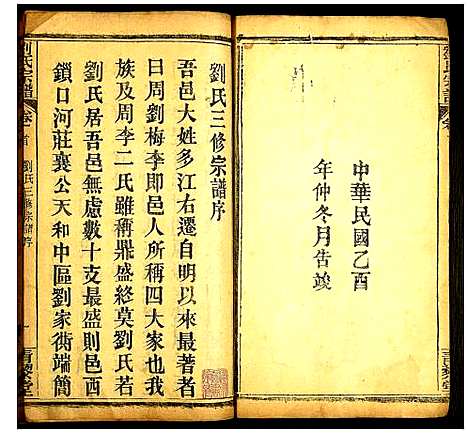 中華民國乙酉
年仲冬月告竣
劉氏三修宗譜序
吾邑大姓多江右遷自明以來最著者
曰周劉梅李即邑人所稱四大家也我
族及周李二氏雖稱鼎盛終莫劉氏若
劉氏居吾邑無慮數十支最盛則邑西
鎖口河莊襄公天和中區劉家衖端簡
劉氏宗譜
卷首
劉氏三修宗譜序
一
青藜堂